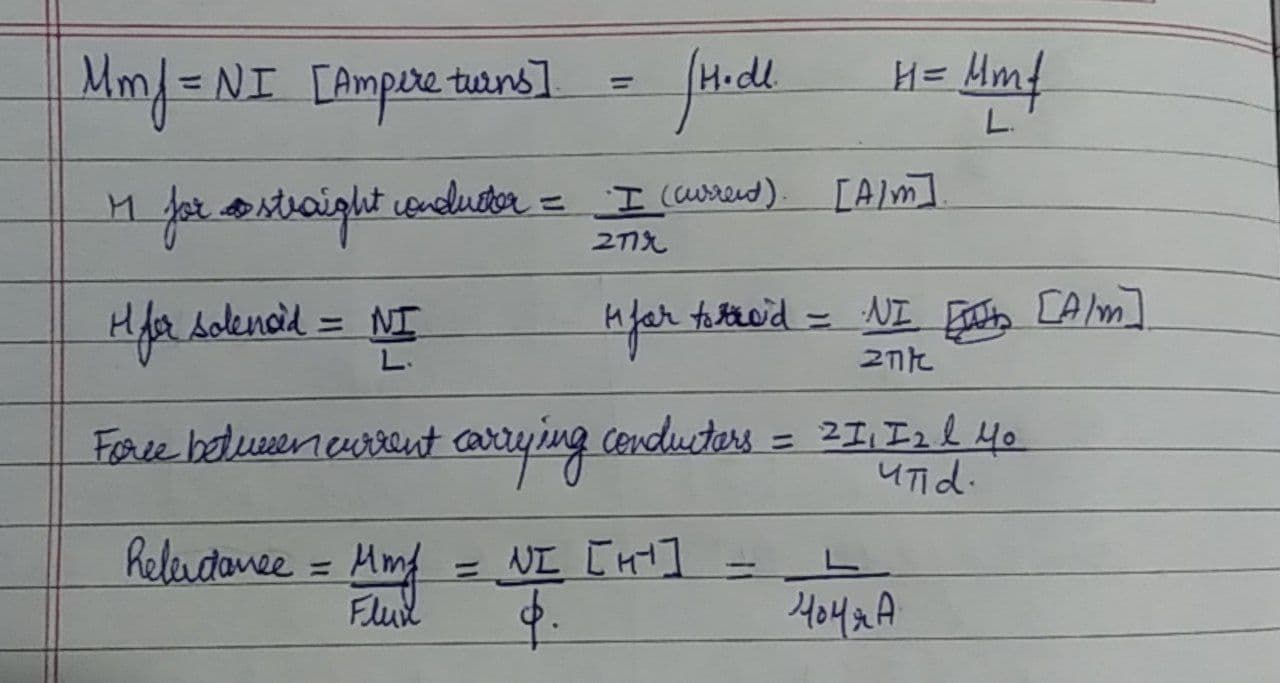 Mmf = NI [Ampere turns] = ∫H·dl. H = Mmf/L.
H for straight conductor = I (current)/2πr. [A/m].
H for solenoid = NI/L. H for toroid = NI/2πr [A/m]
Force between current carrying conductors = 2I₁I₂lμ₀/4πd.
Reluctance = Mmf/Flux = NI/ϕ. [H⁻¹] = L/μ₀μᵣA